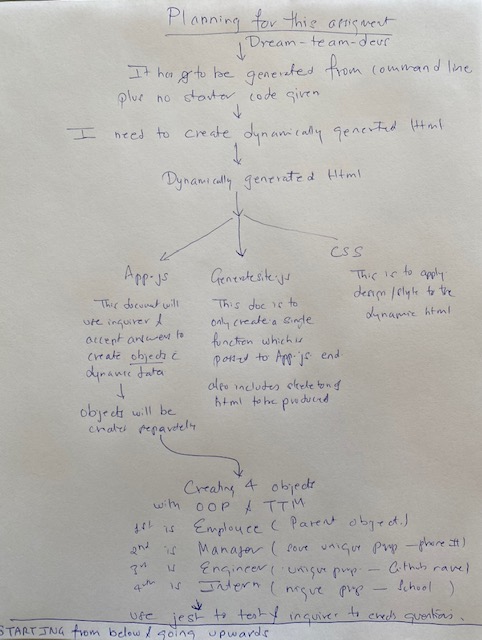 Planning for this assigment
Dream-team-devs
It has to be generated from command line
plus no starter code given
I need to create dynamically generted Html
Dynamically generated Html
App.js
This document will
use inquirer &
accept answers to
create objects &
dynamic data
objects will be
created separately
Generatesite.js
This doc is to
only create a single
function which is
passed to App.js end
also includes skeleton of
html to be produced
CSS
This is to apply
design/style to the
dynamic html
Creating 4 objects
with OOP & TTM
1st is Employee (Parent object.)
2nd is Manager ( unique prop - phone #)
3rd is Engineer ( unique prop - Github name)
4th is Intern ( prop - School )
use jest to test & inquirer to questions.
STARTING from below & going upwards